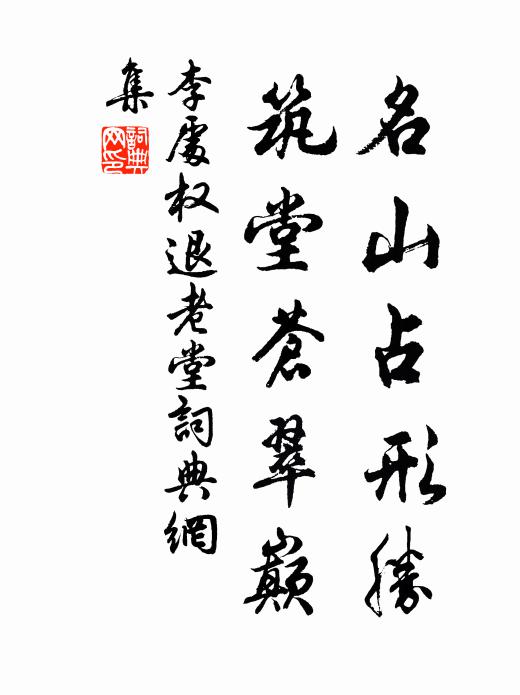 名山占形勝
筑堂蒼翠巔
李處权退老堂詞典網
集
詞典网印